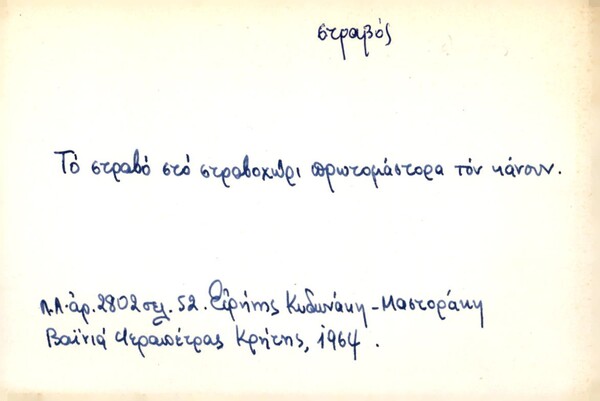 στραβός
Τό στραβό στό στραβοχώρι πρωτομάστορα τόν κάνουν.
Λ.Α. ἀρ. 2802 σελ. 52. Εἰρήνης Κυδωνάκη - Μαστοράκη
Βαϊνιά Ἱεραπέτρας Κρήτης, 1964.